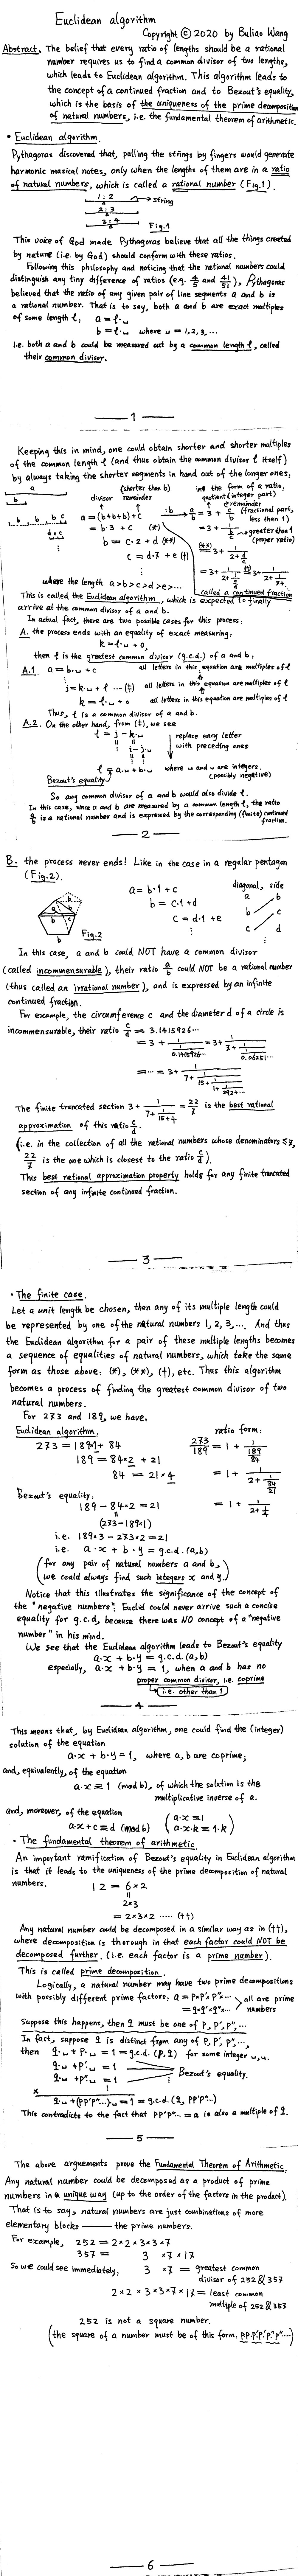 Euclidean algorithm
Copyright © 2020 by Buliao Wang
Abstract. The belief that every ratio of lengths should be a rational
number requires us to find a common divisor of two lengths,
which leads to Euclidean algorithm. This algorithm leads to
the concept of a continued fraction and to Bezout's equality,
which is the basis of the uniqueness of the prime decomposition
of natural numbers, i.e. the fundamental theorem of arithmetic.
• Euclidean algorithm.
Pythagoras discovered that, pulling the strings by fingers would generate
harmonic musical notes, only when the lengths of them are in a ratio
of natural numbers, which is called a rational number (Fig.1).
1:2 → string
2:3
3:4
Fig.1
This voice of God made Pythagoras believe that all the things created
by nature (i.e. by God) should conform with these ratios.
Following this philosophy and noticing that the rational numbers could
distinguish any tiny difference of ratios, Pythagoras
believed that the ratio of any given pair of line segments a and b is
a rational number. That is to say, both a and b are exact multiples
of some length ℓ:
a = ℓ·u
b = ℓ·u where u = 1,2,3,...
i.e. both a and b could be measured out by a common length ℓ, called
their common divisor.
— 1 —
Keeping this in mind, one could obtain shorter and shorter multiples
of the common length ℓ (and thus obtain the common divisor ℓ itself)
by always taking the shorter segments in hand out of the longer ones:
a
b
(shorter than b)
divisor remainder
in the form of a ratio:
quotient (integer part)
remainder
(fractional part,
less than 1)
a = (b+b+b)+c
= b·3 + c (*)
greater than 1
(proper ratio)
b = c·2 + d (**)
c = d·7 + e (†)
where the length a>b>c>d>e>...
called a continued fraction
This is called the Euclidean algorithm, which is expected to finally
arrive at the common divisor of a and b.
In actual fact, there are two possible cases for this process:
A. the process ends with an equality of exact measuring:
k = ℓ·u + 0,
then ℓ is the greatest common divisor (g.c.d.) of a and b:
A.1. a = b·u + c all letters in this equation are multiples of ℓ
j = k·u + ℓ ...(‡) all letters in this equation are multiples of ℓ
k = ℓ·u + 0 all letters in this equation are multiples of ℓ
Thus, ℓ is a common divisor of a and b.
A.2. On the other hand, from (‡), we see
ℓ = j - k·u
replace eary letter
with preceding ones
i - j·u
ℓ = a·u + b·u where u and u are integers.
(possibly negative)
Bezout's equality
So any common divisor of a and b would also divide ℓ.
In this case, since a and b are measured by a common length ℓ, the ratio
a/b is a rational number and is expressed by the corresponding (finite) continued
fraction.
— 2 —
B. the process never ends! Like in the case in a regular pentagon
(Fig.2).
a = b·1 + c
b = c·1 + d
c = d·1 + e
diagonal, side
a b
b c
c d
Fig.2
In this case, a and b could NOT have a common divisor
(called incommensurable), their ratio a/b could NOT be a rational number
(thus called an irrational number), and is expressed by an infinite
continued fraction.
For example, the circumference c and the diameter d of a circle is
incommensurable, their ratio c/d = 3.1415926...
= 3 + 1/(1/0.1415926...) = 3 + 1/(7 + 1/(1/0.06251...))
= ... = 3 + 1/(7 + 1/(15 + 1/(1 + 1/(292+...))))
The finite truncated section 3 + 1/(7 + 1/(15+1/1)) = 22/7 is the best rational
approximation of this ratio c/d.
(i.e. in the collection of all the rational numbers whose denominators ≤ 7,
22/7 is the one which is closest to the ratio c/d).
This best rational approximation property holds for any finite truncated
section of any infinite continued fraction.
— 3 —
• The finite case.
Let a unit length be chosen, then any of its multiple length could
be represented by one of the natural numbers 1, 2, 3, .... And thus
the Euclidean algorithm for a pair of these multiple lengths becomes
a sequence of equalities of natural numbers, which take the same
form as those above: (*), (**), (†), etc. Thus this algorithm
becomes a process of finding the greatest common divisor of two
natural numbers.
For 273 and 189, we have,
Euclidean algorithm. ratio form:
273 = 189·1 + 84 273/189 = 1 + 1/(189/84)
189 = 84×2 + 21 = 1 + 1/(2 + 1/(84/21))
84 = 21×4
= 1 + 1/(2 + 1/4)
Bezout's equality:
189 - 84×2 = 21
(273-189×1)
i.e. 189×3 - 273×2 = 21
i.e. a·x + b·y = g.c.d.(a,b)
(for any pair of natural numbers a and b,
we could always find such integers x and y.)
Notice that this illustrates the significance of the concept of
the "negative numbers": Euclid could never arrive such a concise
equality for g.c.d, because there was NO concept of a "negative
number" in his mind.
We see that the Euclidean algorithm leads to Bezout's equality
a·x + b·y = g.c.d.(a,b)
especially, a·x + b·y = 1, when a and b has no
proper common divisor, i.e. coprime
i.e. other than 1
— 4 —
This means that, by Euclidean algorithm, one could find the (integer)
solution of the equation
a·x + b·y = 1, where a, b are coprime;
and, equivalently, of the equation
a·x ≡ 1 (mod b), of which the solution is the
multiplicative inverse of a.
and, moreover, of the equation
a·x + c ≡ d (mod b) (a·x ≡ 1
a·x·k ≡ 1·k)
• The fundamental theorem of arithmetic
An important ramification of Bezout's equality in Euclidean algorithm
is that it leads to the uniqueness of the prime decomposition of natural
numbers.
12 = 6×2
2×3
= 2×3×2 ...... (††)
Any natural number could be decomposed in a similar way as in (††),
where decomposition is thorough in that each factor could NOT be
decomposed further. (i.e. each factor is a prime number).
This is called prime decomposition.
Logically, a natural number may have two prime decompositions
with possibly different prime factors: a = p×p'×p''...
= q×q'×q''...
all are prime
numbers
Suppose this happens, then q must be one of p, p', p'', ...
In fact, suppose q is distinct from any of p, p', p'', ...,
then q·u + p·u = 1 = g.c.d.(p,q) for some integer u, u.
q·u + p'·u = 1
q·u + p''·u = 1
Bezout's equality.
×
q·u + (pp'p''...)·u = 1 = g.c.d.(q, pp'p''...)
This contradicts to the fact that pp'p''... = a is also a multiple of q.
— 5 —
The above arguements prove the Fundamental Theorem of Arithmetic:
Any natural number could be decomposed as a product of prime
numbers in a unique way (up to the order of the factors in the product).
That is to say, natural numbers are just combinations of more
elementary blocks —— the prime numbers.
For example, 252 = 2×2×3×3×7
357 = 3 ×7×17
So we could see immediately: 3 ×7 = greatest common
divisor of 252 & 357
2×2×3×3×7×17 = least common
multiple of 252 & 357
252 is not a square number.
(the square of a number must be of this form: pp p'p' p''p''...)
— 6 —